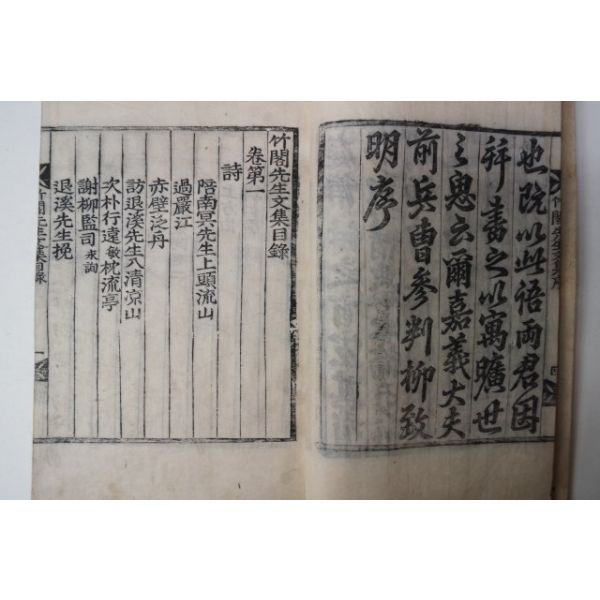 也旣以此語兩君因
拜書之以寓曠世
之思云爾嘉義大夫
前兵曹參判柳致
明序
竹閣先生文集序
四
竹閣先生文集目錄
卷第一
詩
陪南冥先生上頭流山
過嚴江
赤壁泛舟
訪退溪先生入清凉山
次朴行遠敏枕流亭
謝柳監司永詢
退溪先生挽
竹閣先生文集目錄
一